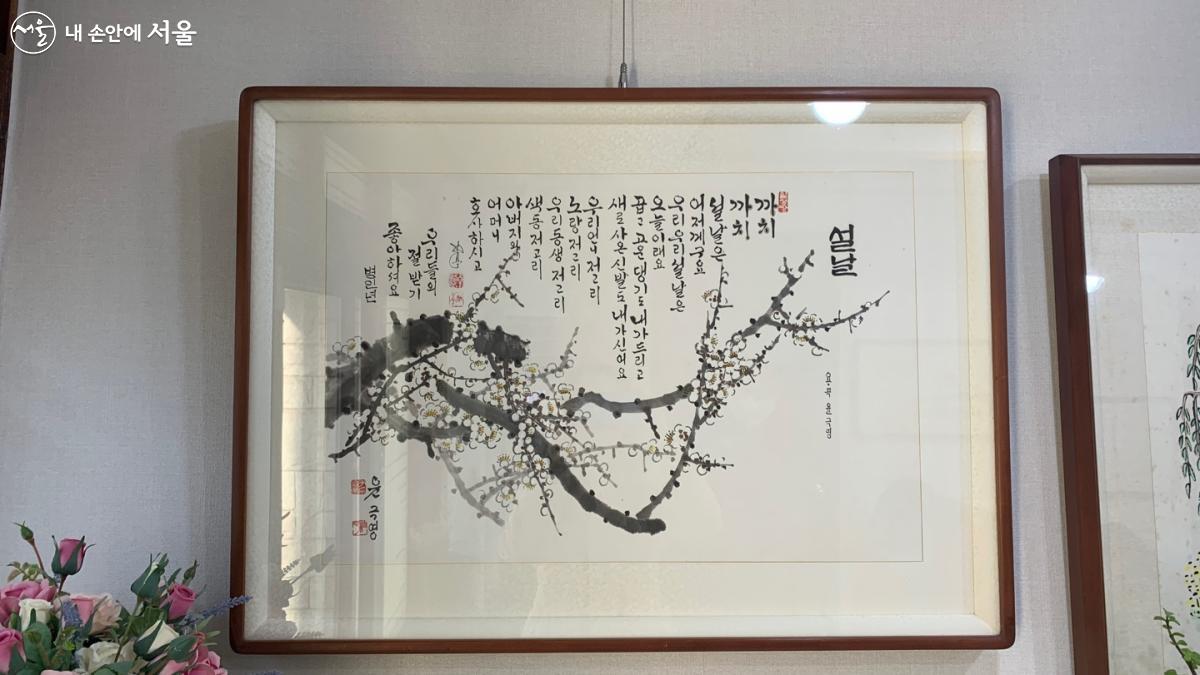 내 손안에 서울
서울
설날
윤극영
까치
까치
설날은
어저께구요
우리우리 설날은
오늘이래요
곱고 고운 댕기도 내가 드리고
새로 사온 신발도 내가 신어요
우리 언니 저고리
노랑 저고리
우리 동생 저고리
색동 저고리
아버지와
어머니
호사하시고
우리들의
절 받기
좋아하셔요
병인년
윤극영